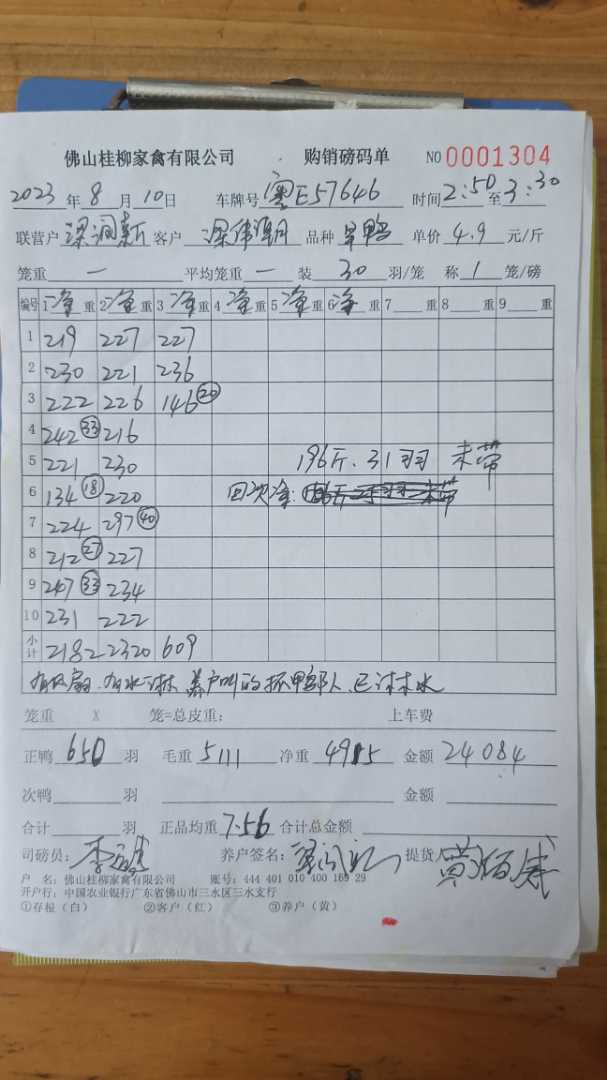 佛山桂柳家禽有限公司 购销磅码单 NO 0001304
2023 年 8 月 10 日 车牌号 粤E57646 时间 2:50 至 3:30
联营户 梁润新 客户 梁伟潮 品种 旱鸭 单价 4.9 元/斤
笼重 一 平均笼重 一 装 30 羽/笼 称 1 笼/磅
编号 1 净 重 2 净 重 3 净 重 4 净 重 5 净 重 6 净 重 7 重 8 重 9 重
1 219 227 227
2 230 221 236
3 222 226 146 20
4 242 33 216
5 221 230 196斤.31羽 未带
6 134 18 220 回次净:
7 224 297 40
8 212 27 227
9 247 33 234
10 231 222
小计 2182 2320 609
有风扇.有水淋 养户叫的抓鸭队人.已淋水
笼重 X 笼=总皮重: 上车费
正鸭 650 羽 毛重 5111 净重 4915 金额 24084
次鸭 羽 金额
合计 羽 正品均重 7.56 合计总金额
司磅员: 养户签名: 提货人
户 名: 佛山桂柳家禽有限公司 账号: 444 401 010 400 169 29
开户行: 中国农业银行广东省佛山市三水区三水支行
①存根(白) ②客户(红) ③养户(黄)